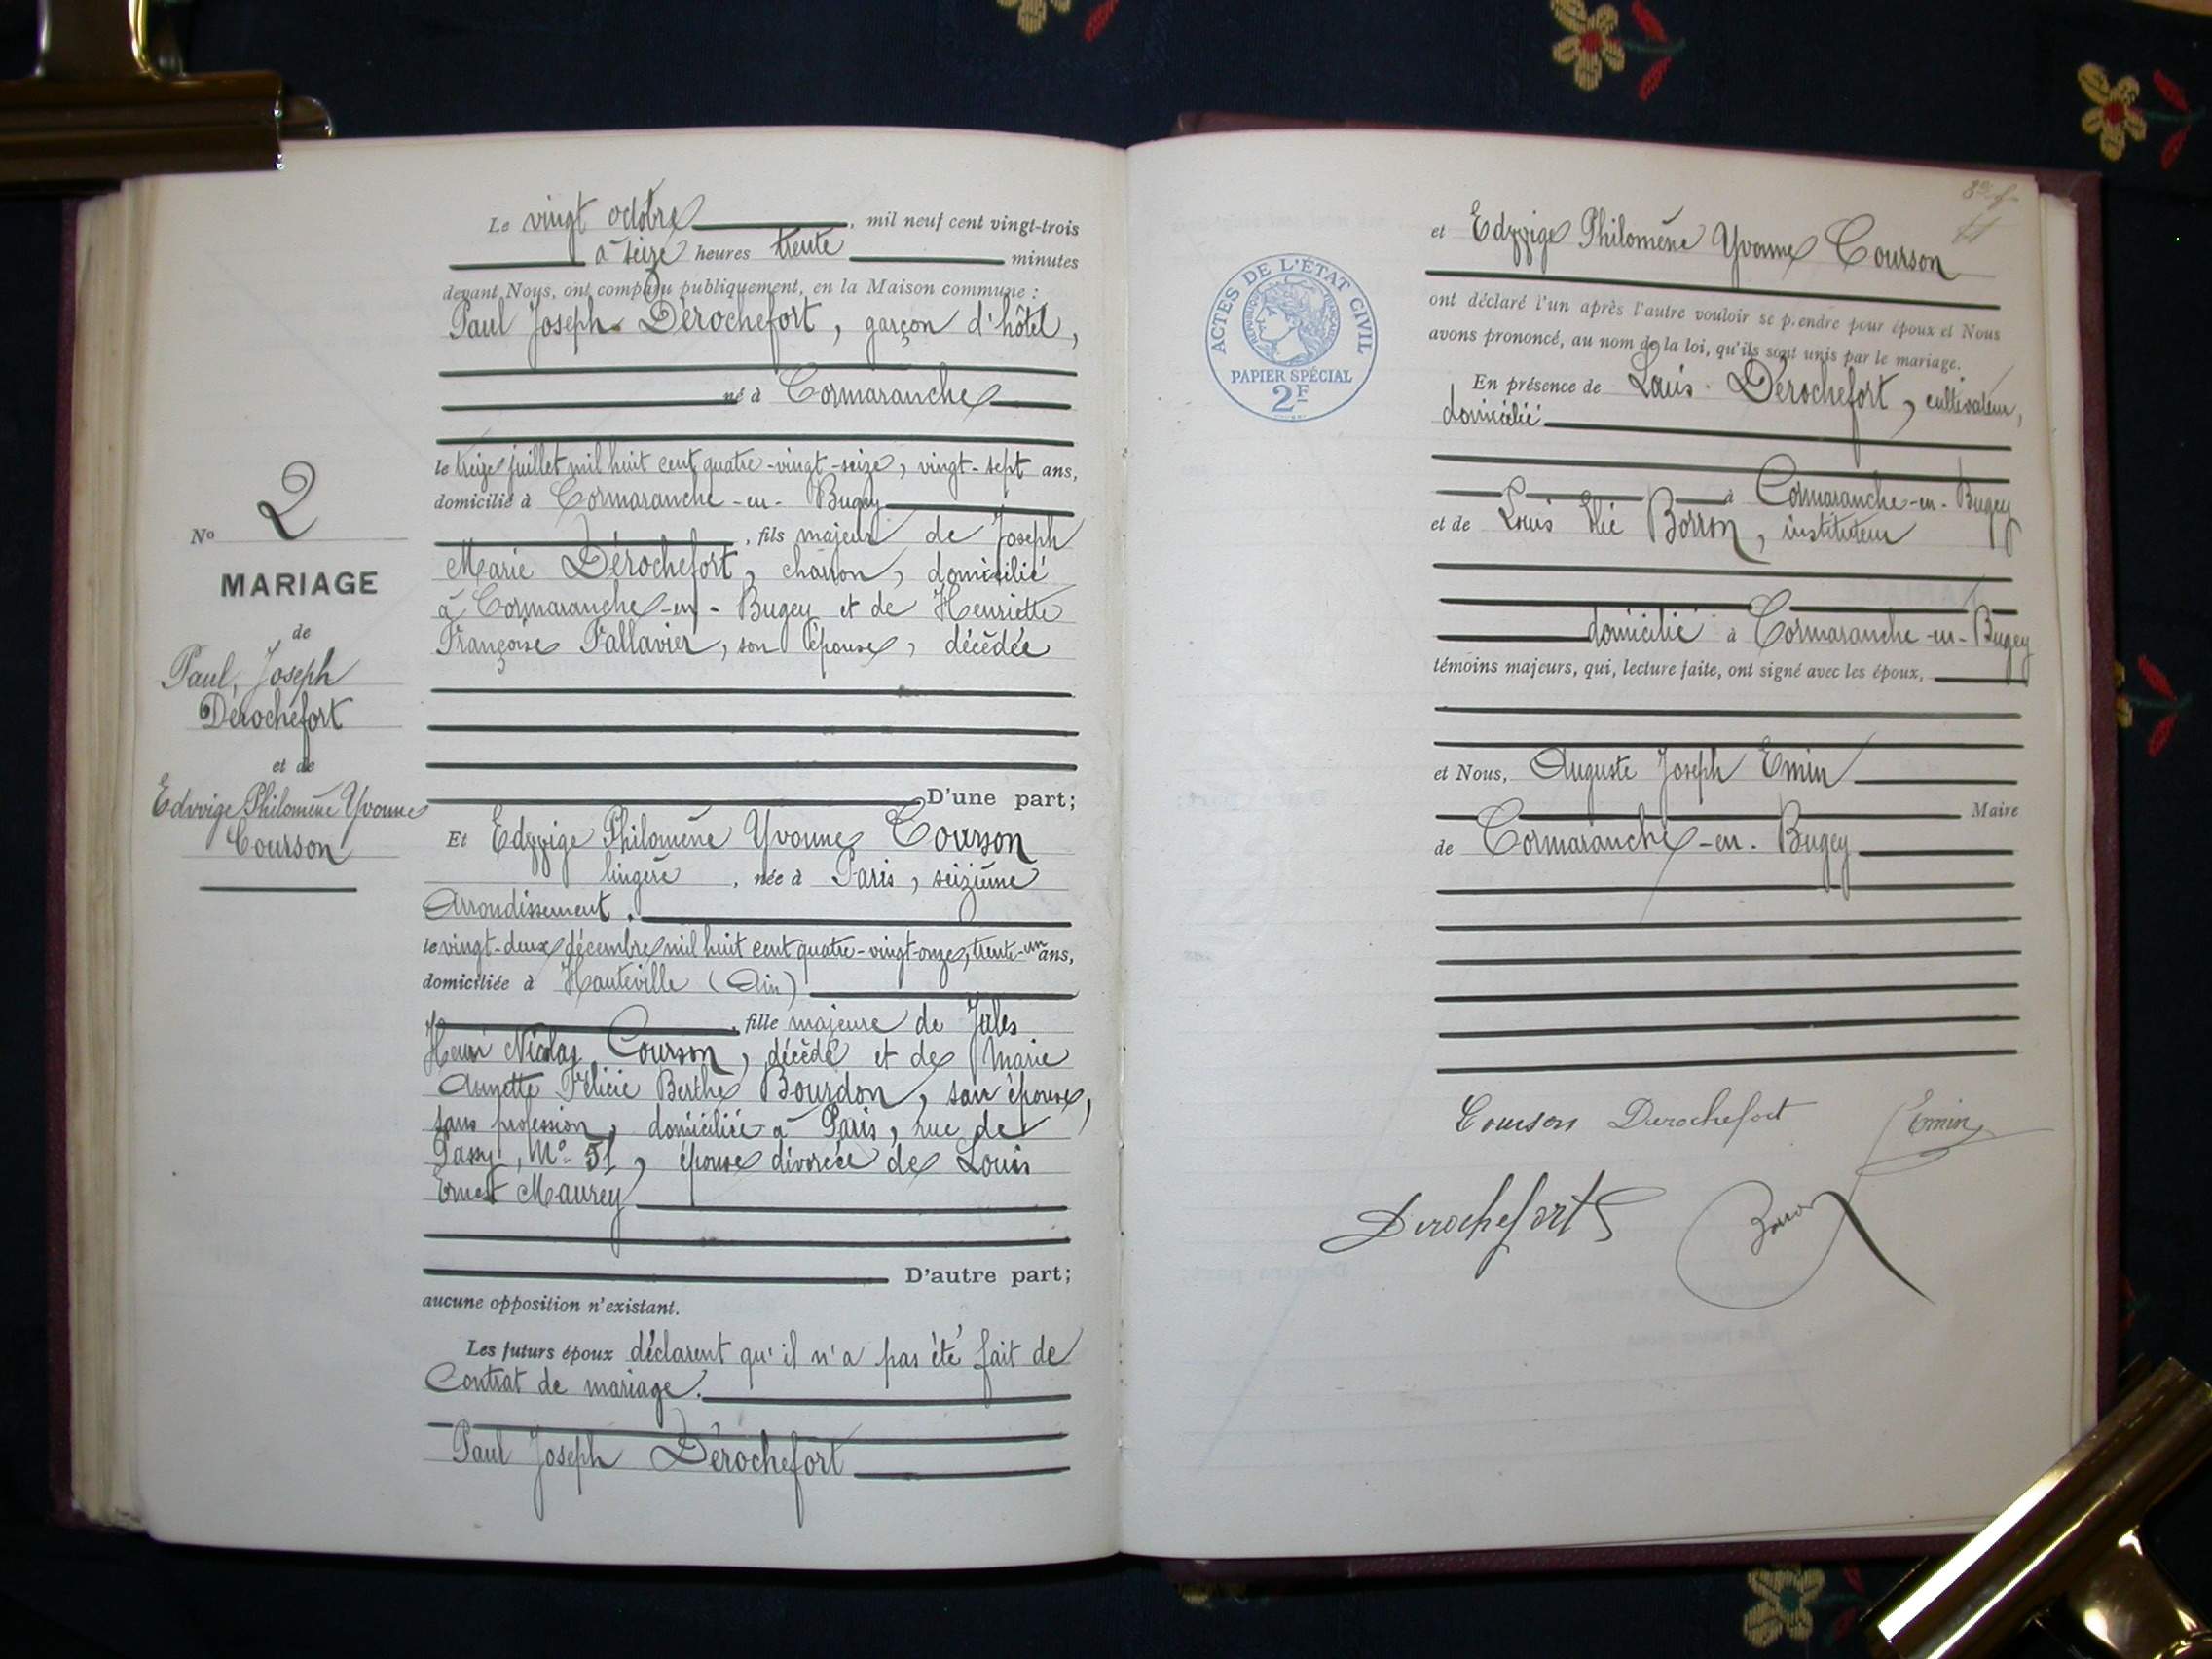 Le vingt octobre, mil neuf cent vingt-trois
à seize heures trente minutes
devant Nous, ont comparu publiquement, en la Maison commune :
Paul Joseph Dérochefort, garçon d'hôtel,
né à Cormaranche
le treize juillet mil huit cent quatre-vingt-seize, vingt-sept ans,
domicilié à Cormaranche-en-Bugey
, fils majeur de Joseph
Marie Dérochefort, charron, domicilié
à Cormaranche-en-Bugey et de Henriette
Françoise Fallavier, son épouse, décédée
D'une part;
No 2
MARIAGE
de
Paul, Joseph
Dérochefort
et de
Edwige Philomène Yvonne
Courson
Et Edwige Philomène Yvonne Courson
lingère, née à Paris, seizième
Arrondissement.
le vingt-deux décembre mil huit cent quatre-vingt-onze, trente-un ans,
domiciliée à Hauteville (Ain)
, fille majeure de Jules
Henri Nicolas Courson, décédé et de Marie
Annette Félicie Berthe Bourdon, son épouse,
sans profession, domiciliée à Paris, rue de
Passy, No 51, épouse divorcée de Louis
Ernest Maurey
D'autre part;
aucune opposition n'existant.
Les futurs époux déclarent qu'il n'a pas été fait de
Contrat de mariage.
Paul Joseph Dérochefort
ACTES DE L'ÉTAT CIVIL
PAPIER SPÉCIAL
2F
et Edwige Philomène Yvonne Courson
ont déclaré l'un après l'autre vouloir se prendre pour époux et Nous
avons prononcé, au nom de la loi, qu'ils sont unis par le mariage.
En présence de Louis Dérochefort, cultivateur,
domicilié
à Cormaranche-en-Bugey
et de Louis Elie Borron, instituteur
domicilié à Cormaranche-en-Bugey
témoins majeurs, qui, lecture faite, ont signé avec les époux,
et Nous, Auguste Joseph Emin
Maire
de Cormaranche-en-Bugey
Courson Derochefort Emin
Derochefort